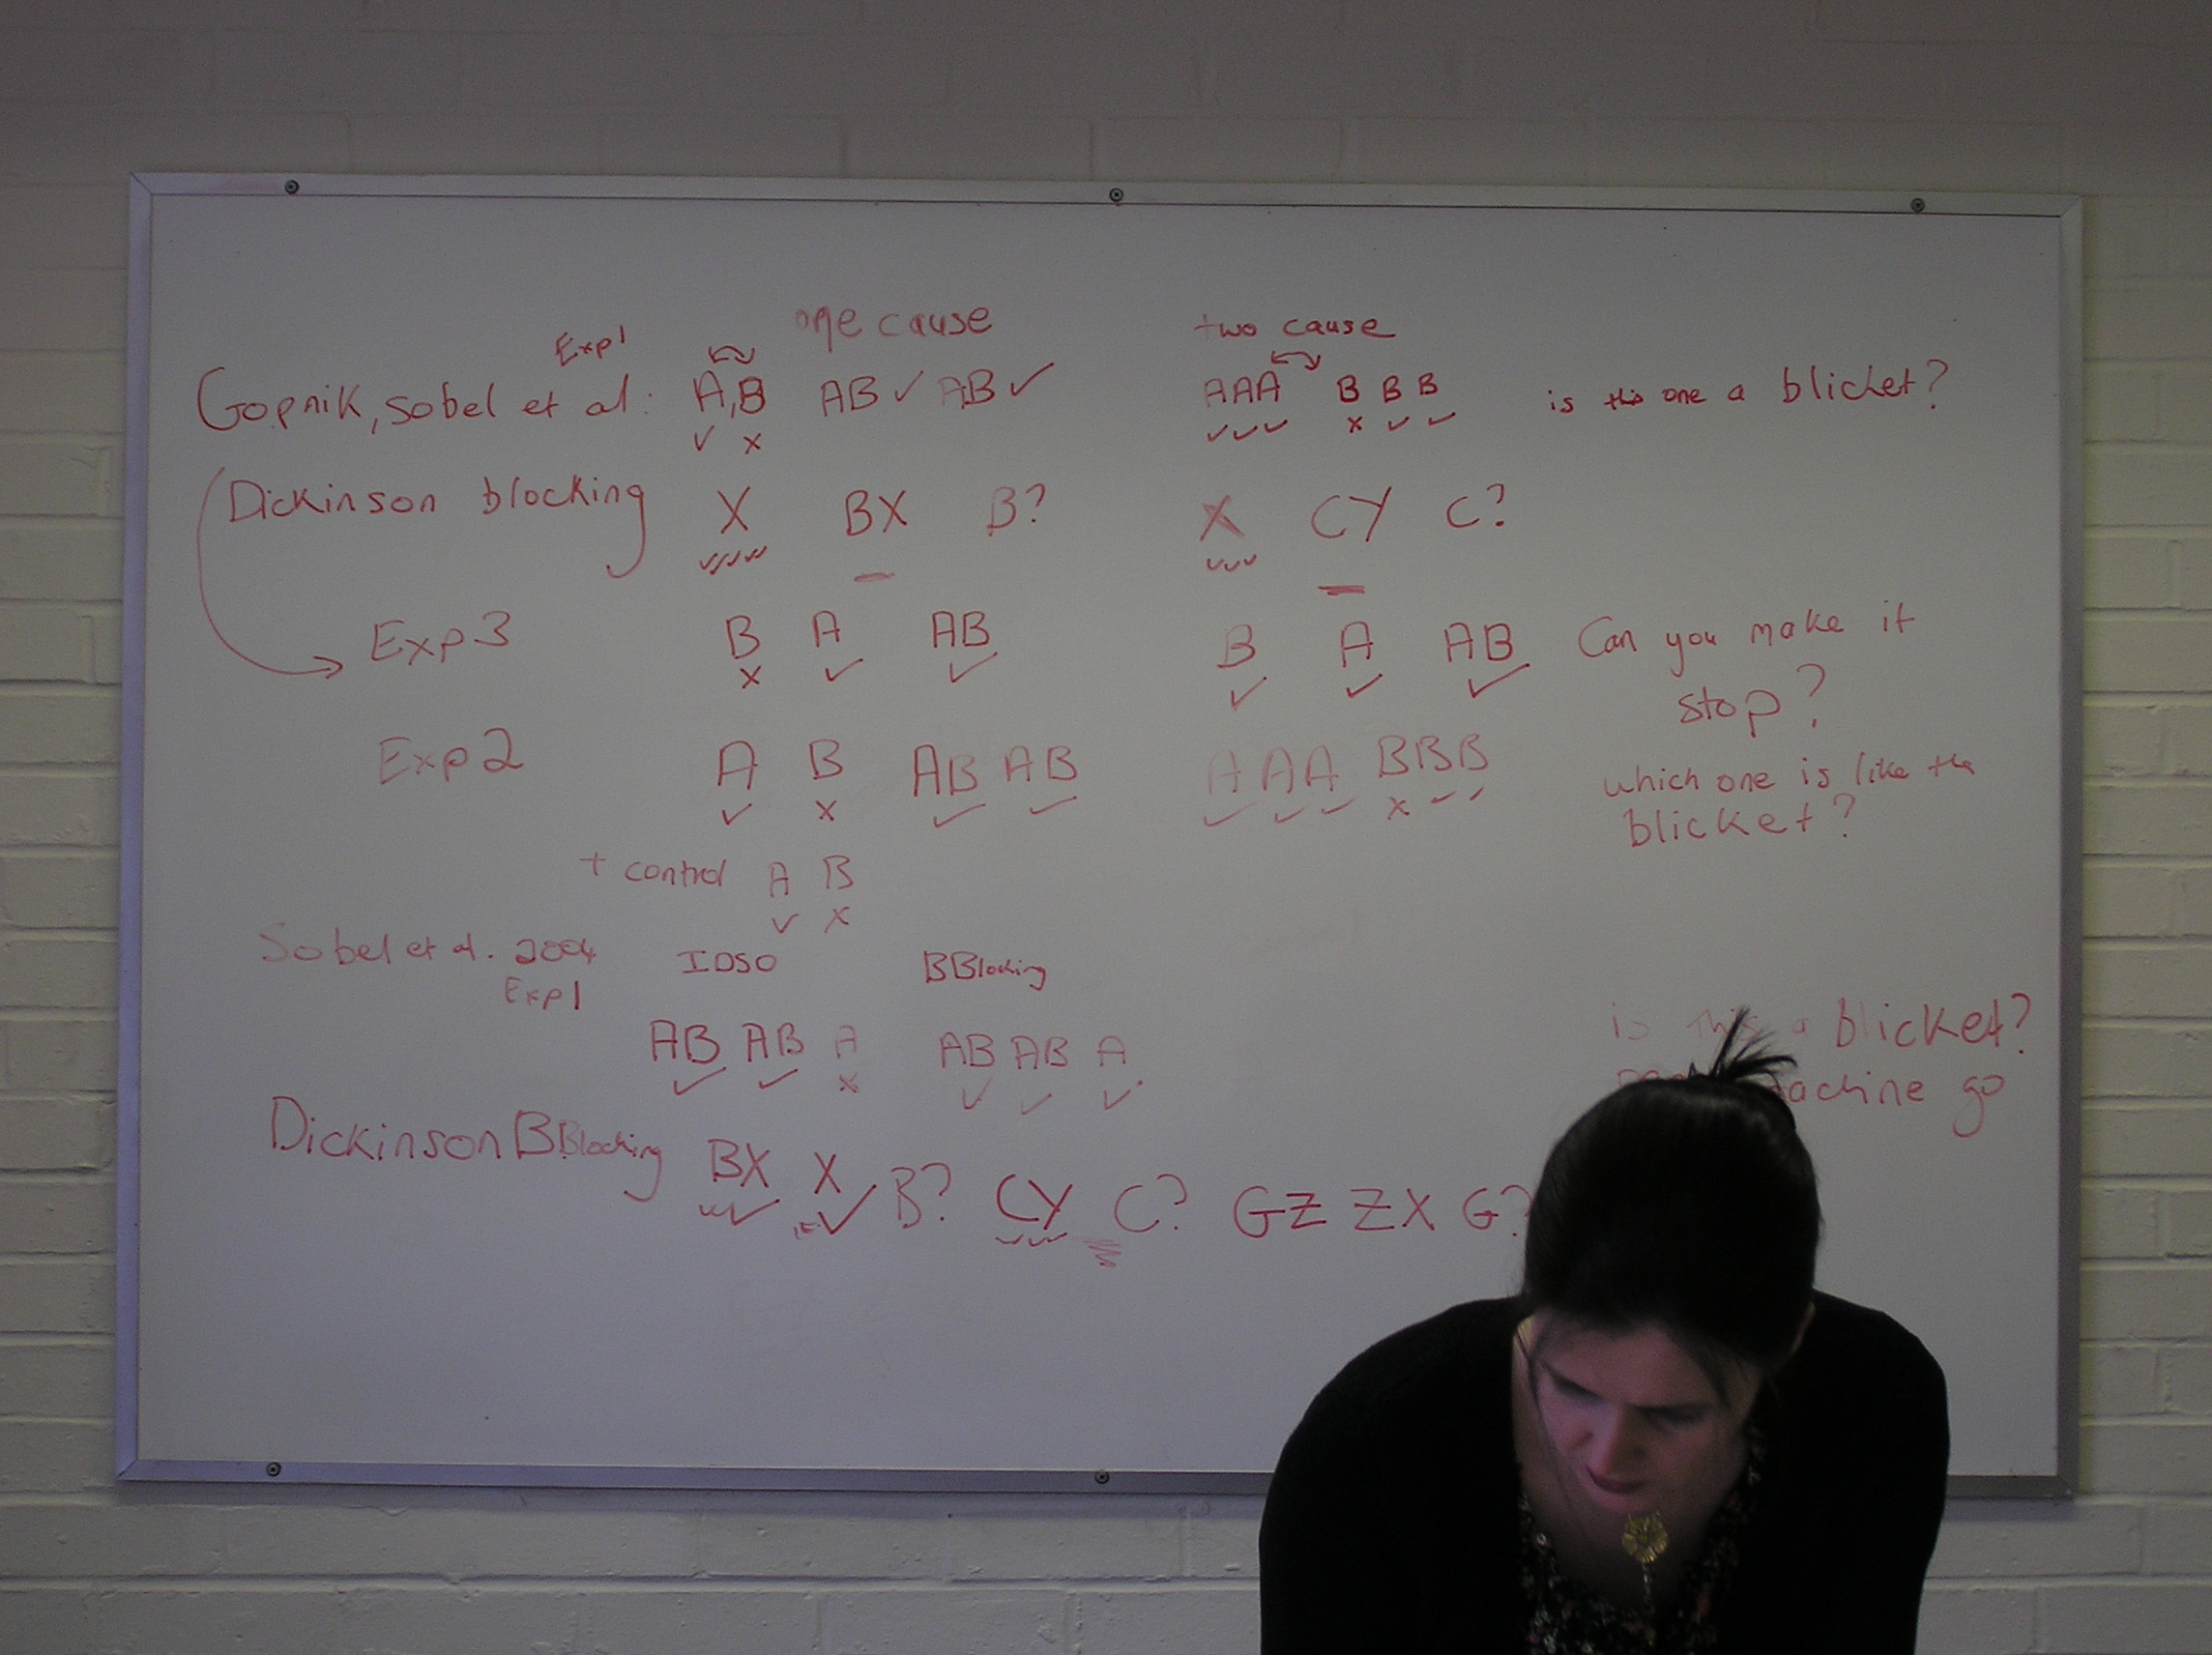 one cause two cause
Exp1
Gopnik, Sobel et al: A,B AB ✓ AB ✓ AAA B B B is this one a blicket?
✓ x ✓✓✓ x ✓ ✓
Dickinson blocking X BX B? X CY C?
✓✓✓✓ ✓✓✓
Exp3 B A AB B A AB Can you make it
x ✓ ✓ ✓ ✓ ✓ stop?
Exp2 A B AB AB A A A B B B which one is like the
✓ x ✓ ✓ ✓ ✓ ✓ x ✓ ✓ blicket?
+ control A B
✓ x
Sobel et al. 2004 IOSO BBlocking
Exp1
AB AB A AB AB A is this a blicket?
✓ ✓ x ✓ ✓ ✓ machine go
Dickinson BBlocking BX X B? CY C? GZ ZX G?
✓ ✓ ✓✓✓